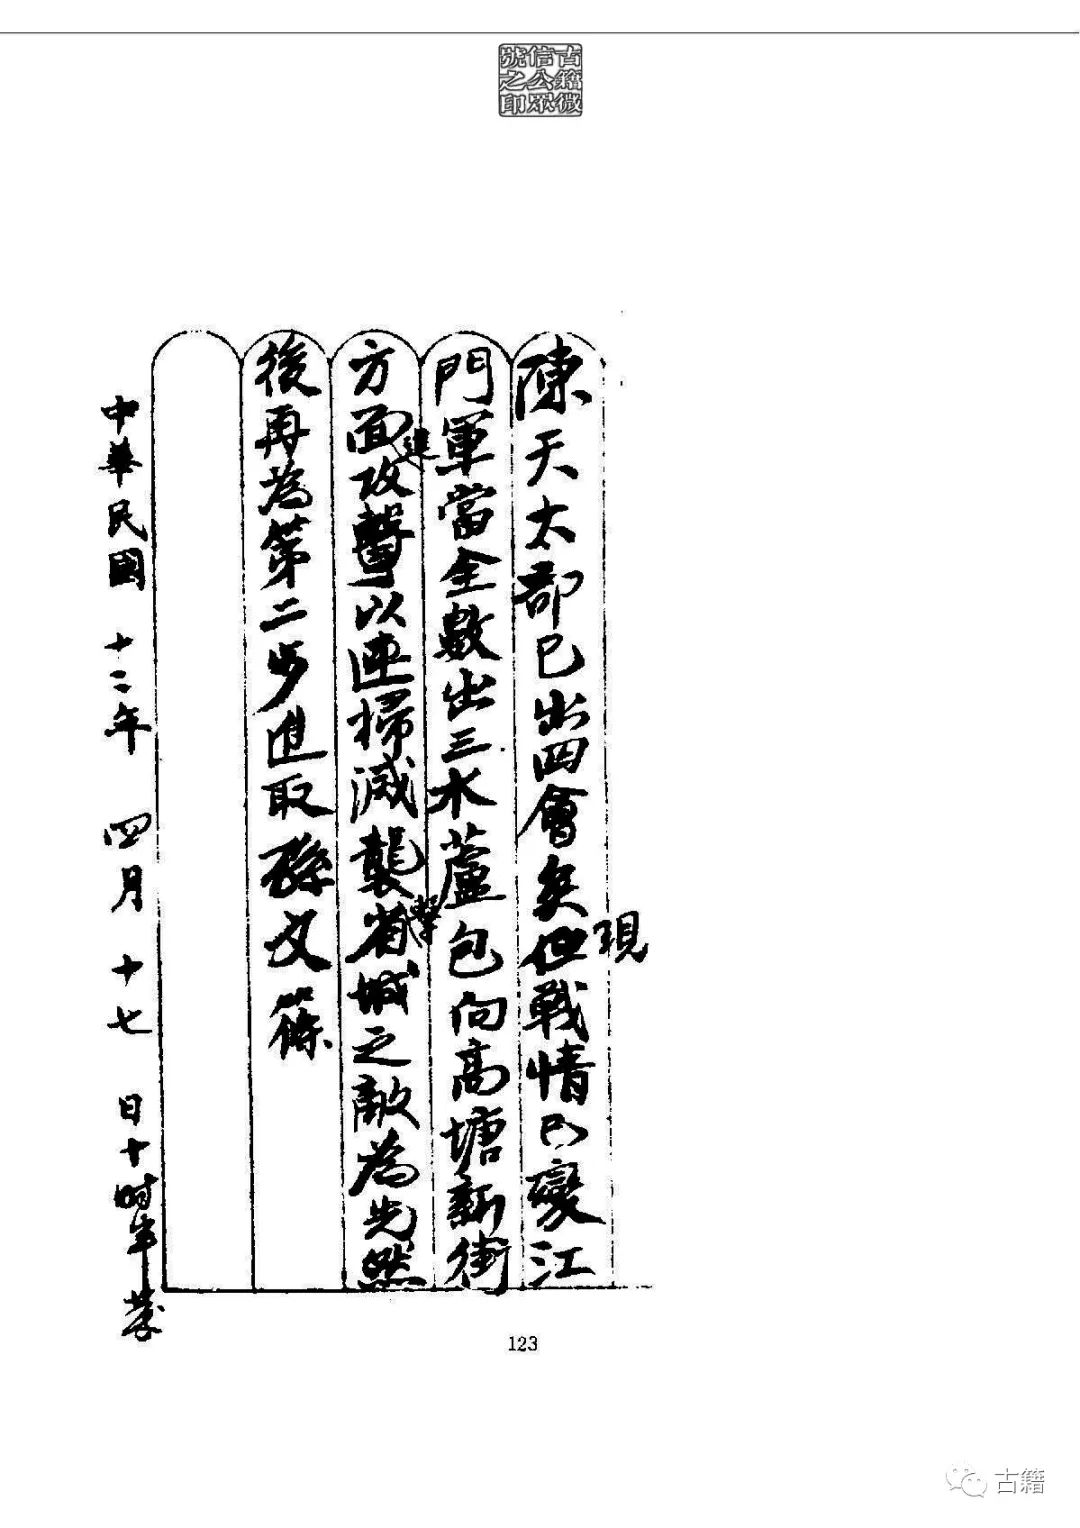 古籍微
信公眾
號之印
陳天太部已出四會矣但現戰情已變江
門軍當全數出三水蘆包向高塘新街
方面進攻擊以速掃滅襲擊省城之敵為先然
後再為第二步進取孫文篠
中華民國十二年四月十七日十時半發
123
古籍